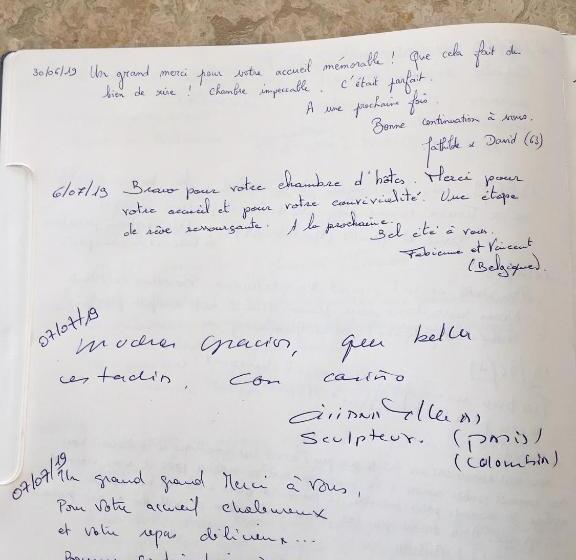 30/06/19 Un grand merci pour votre accueil mémorable ! Que cela fait du
bien de rire ! Chambre impeccable. C'était parfait.
A une prochaine fois.
Bonne continuation à vous.
Mathilde & David (63)
6/07/19 Bravo pour votre chambre d'hôtes. Merci pour
votre accueil et pour votre convivialité. Une étape
de rêve ressourçante. A la prochaine.
Bel été à vous.
Fabienne et Vincent
(Belgique).
07/07/19
muchas gracias, que bella
estadia, con cariño
Sculpteur. (Paris)
(Colombia)
07/07/19 Un grand grand Merci à vous,
Pour votre accueil chaleureux
et votre repas délicieux...